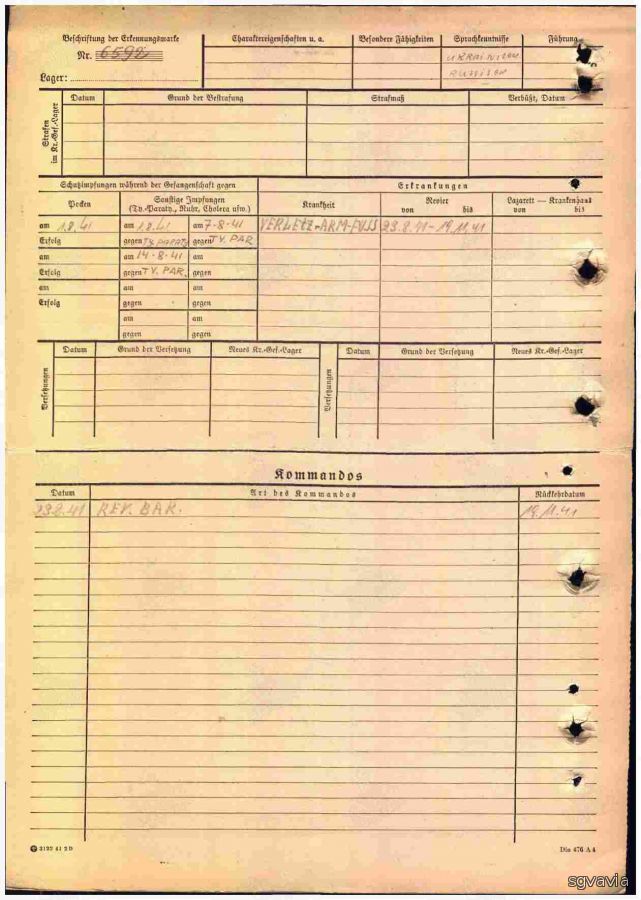 Beschriftung der Erkennungsmarke
Nr. 6592
Lager:
Charaktereigenschaften u. a.
Besondere Fähigkeiten
Sprachkenntnisse
UKRAINISCH
RUSSISCH
Führung
Strafen im Kr.-Gef.-Lager
Datum
Grund der Bestrafung
Strafmaß
Verbüßt, Datum
Schutzimpfungen während der Gefangenschaft gegen
Erkrankungen
Pocken
Sonstige Impfungen
(Ty.-Paraty., Ruhr, Cholera usw.)
Krankheit
Revier
von bis
Lazarett — Krankenhaus
von bis
am 1.8.41 am 1.8.41 am 7-8-41 VERLETZ-ARM-FUSS 23.8.41-19.11.41
Erfolg gegen TY.PARATY gegen TY.PAR
am am 14-8-41 am
Erfolg gegen TY.PAR. gegen
am am am
Erfolg gegen gegen
am am
gegen gegen
Versetzungen
Datum
Grund der Versetzung
Neues Kr.-Gef.-Lager
Versetzungen
Datum
Grund der Versetzung
Neues Kr.-Gef.-Lager
Kommandos
Datum
Art des Kommandos
Rückkehrdatum
23.8.41 REV. BAR. 19.11.41
3122 41 2 D
Din 476 A 4
sgvavia